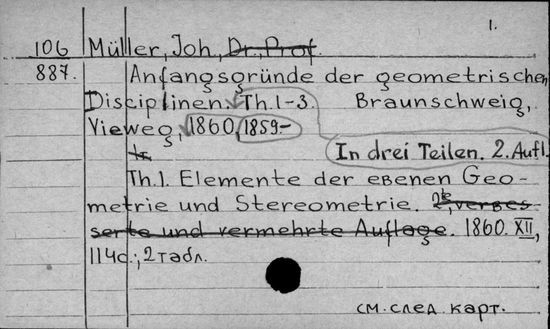 1.
106 Müller, Joh., Dr., Prof.
887. Anfangsgründe der geometrischen
Disciplinen. Th. 1-3. Braunschweig,
Vieweg, 1860, 1859-
In drei Teilen. 2. Aufl.
Th. 1. Elemente der ebenen Geo-
metrie und Stereometrie. 2te, verbes-
serte und vermehrte Auflage. 1860. XII,
114 с.; 2 табл.
см. след. карт.